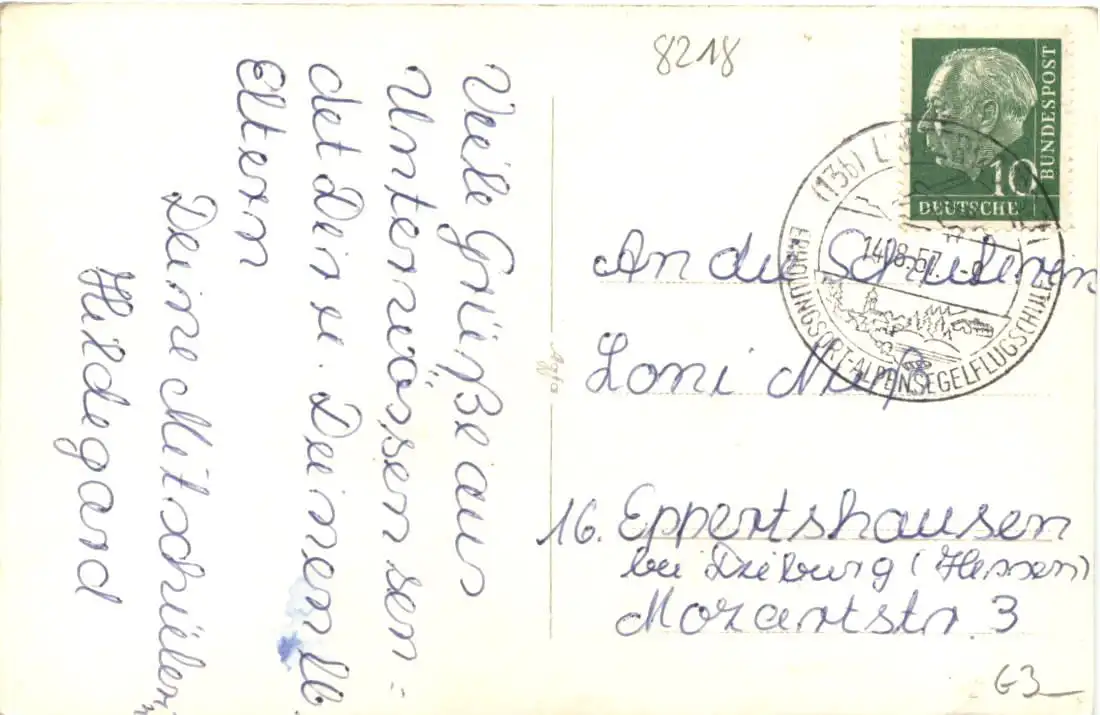 8218
Viele Grüße aus
Unterwössen sen=
det Dir u. Deinen lb.
Eltern
Deine Mitschülerin
Hildegard
Agfa
BUNDESPOST
10
DEUTSCHE
(13b)
14.8.57
ERHOLUNGSORT-ALPENSEGELFLUGSCHULE
An die Schülerin
Loni
16. Eppertshausen
bei Dieburg (Hessen)
Mozartstr. 3
G3